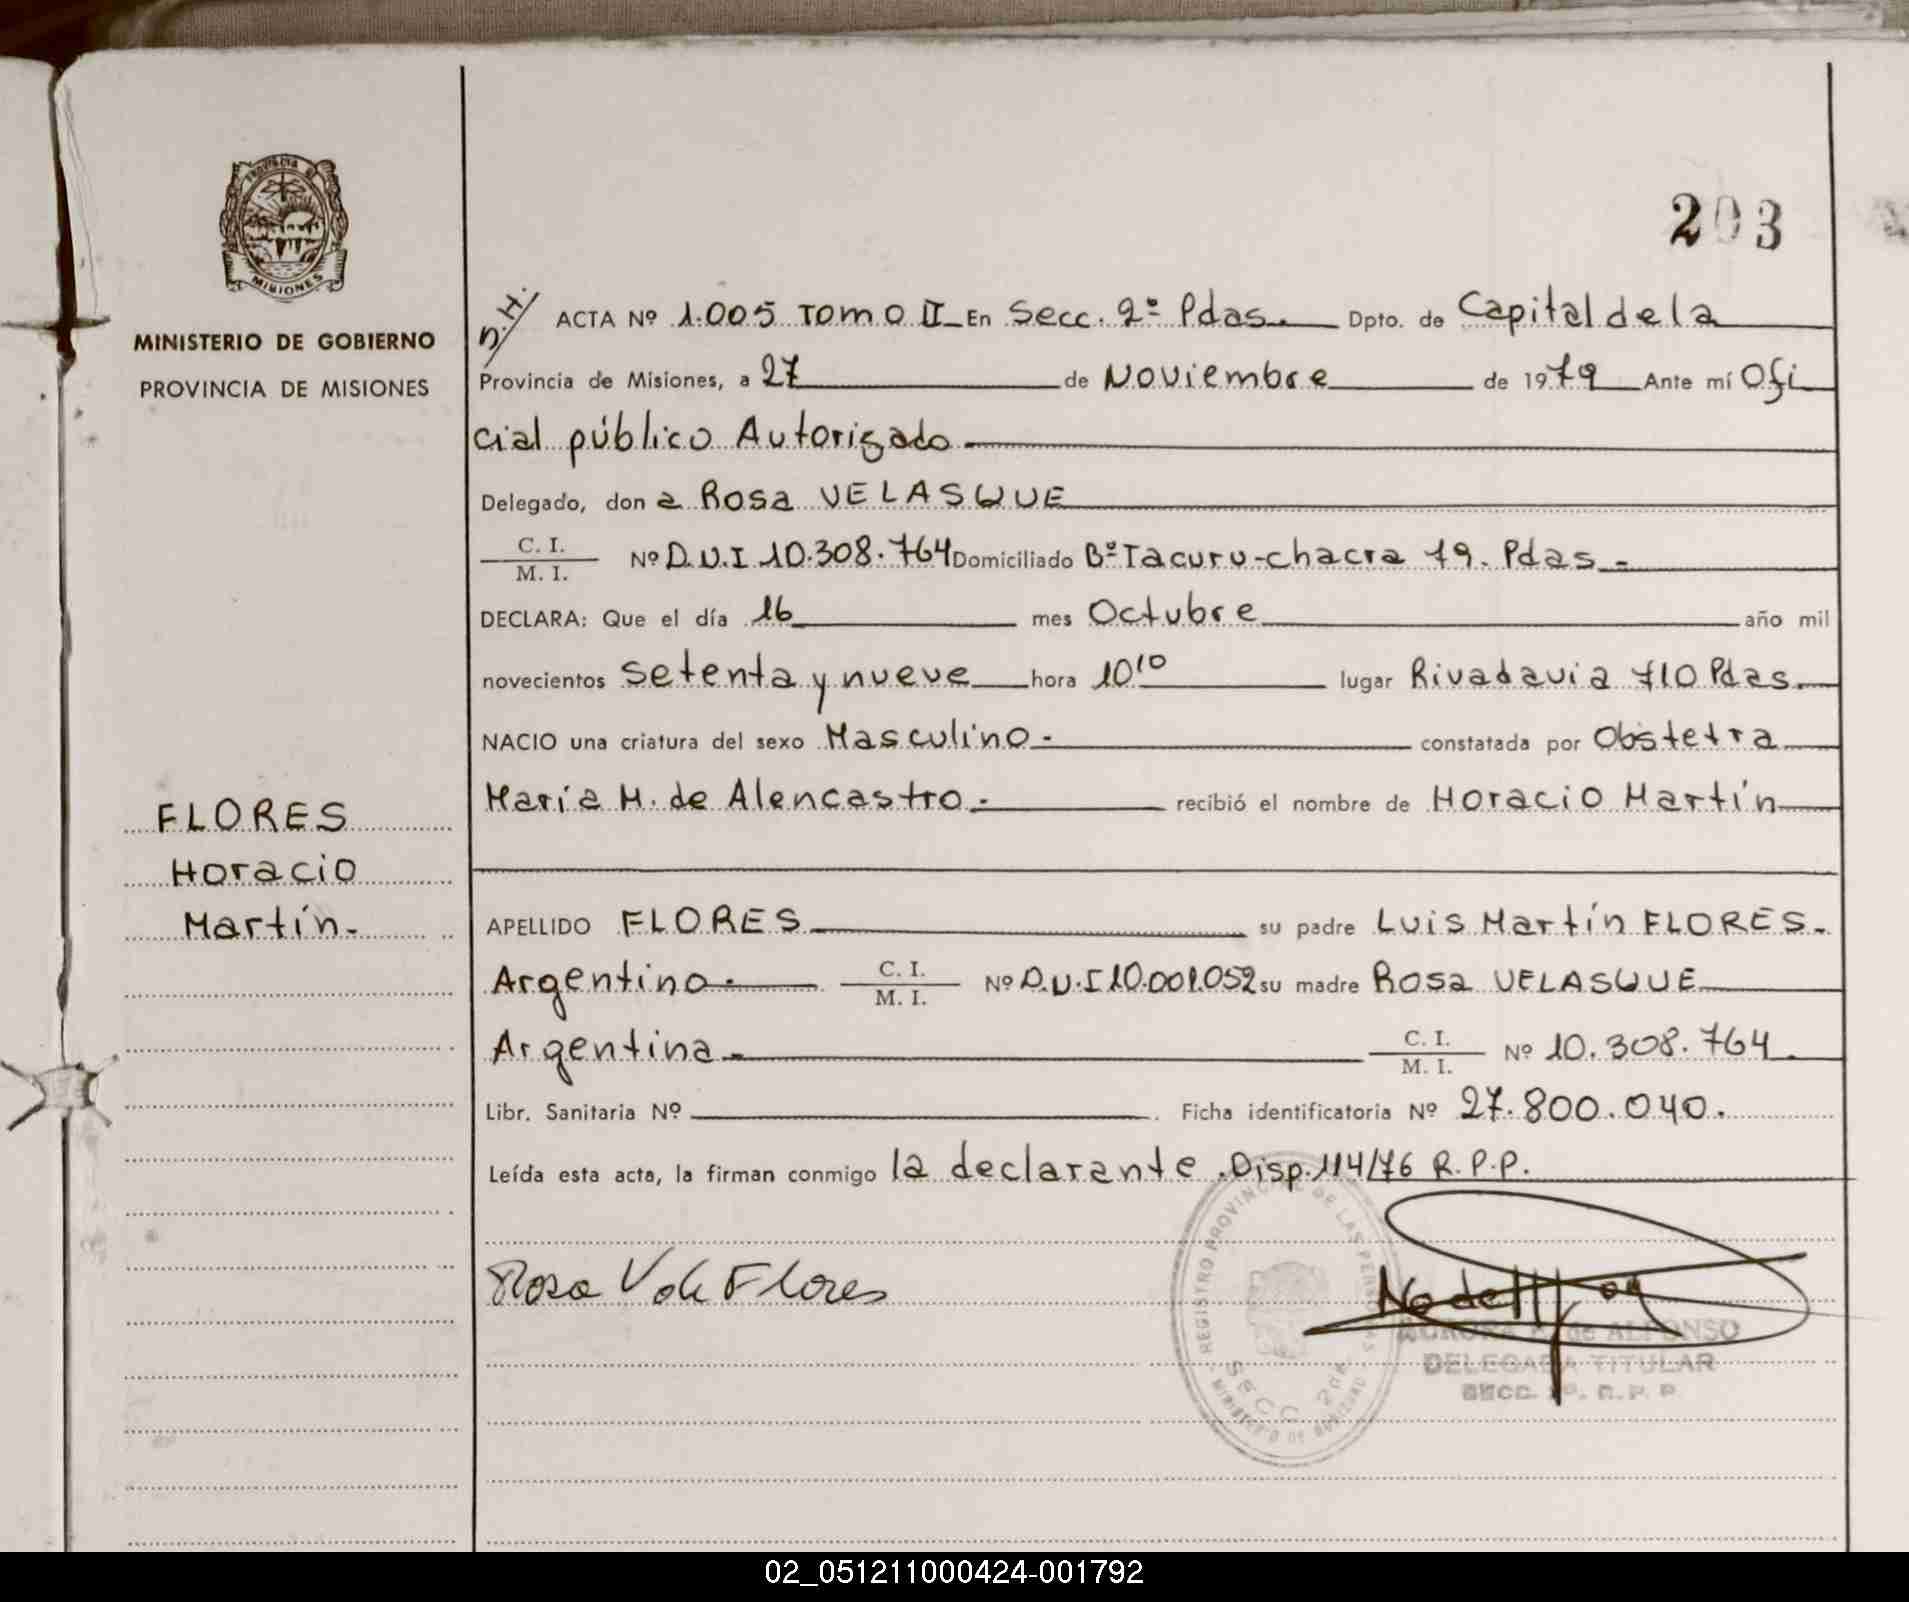 PROVINCIA DE
MISIONES
MINISTERIO DE GOBIERNO
PROVINCIA DE MISIONES
FLORES
Horacio
Martín.
203
ACTA Nº 1.005 Tomo II En Secc. 2º Pdas. Dpto. de Capital de la
Provincia de Misiones, a 27 de Noviembre de 1979 Ante mí Ofi
cial público Autorizado
Delegado, don a Rosa VELASQUE
C. I.
M. I.
Nº D.U.I 10.308.764 Domiciliado Bº Tacuru-chacra 79. Pdas.
DECLARA: Que el día 16 mes Octubre año mil
novecientos setenta y nueve hora 10¹⁰ lugar Rivadavia 710 Pdas.
NACIO una criatura del sexo Masculino. constatada por Obstetra
María M. de Alencastro. recibió el nombre de Horacio Martín
APELLIDO FLORES su padre Luis Martín FLORES.
Argentino. C. I.
M. I.
Nº D.U.I 10.001.052 su madre Rosa VELASQUE
Argentina C. I.
M. I.
Nº 10.308.764.
Libr. Sanitaria Nº Ficha identificatoria Nº 27.800.040.
Leída esta acta, la firman conmigo la declarante. Disp. 114/76 R.P.P.
Rosa V de Flores
REGISTRO PROVINCIAL DE LAS PERSONAS
SECC 2da.
MINISTERIO DE GOBIERNO
de ALFONSO
DELEGADA TITULAR
SECC. R. P. P.
02_051211000424-001792